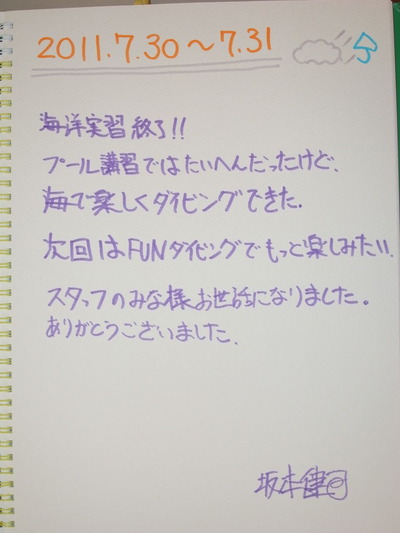 2011.7.30〜7.31
海洋実習終了!!
プール講習ではたいへんだったけど、
海で楽しくダイビングできた.
次回はFUNダイビングでもっと楽しみたい.
スタッフのみな様お世話になりました。
ありがとうございました.
坂本健司